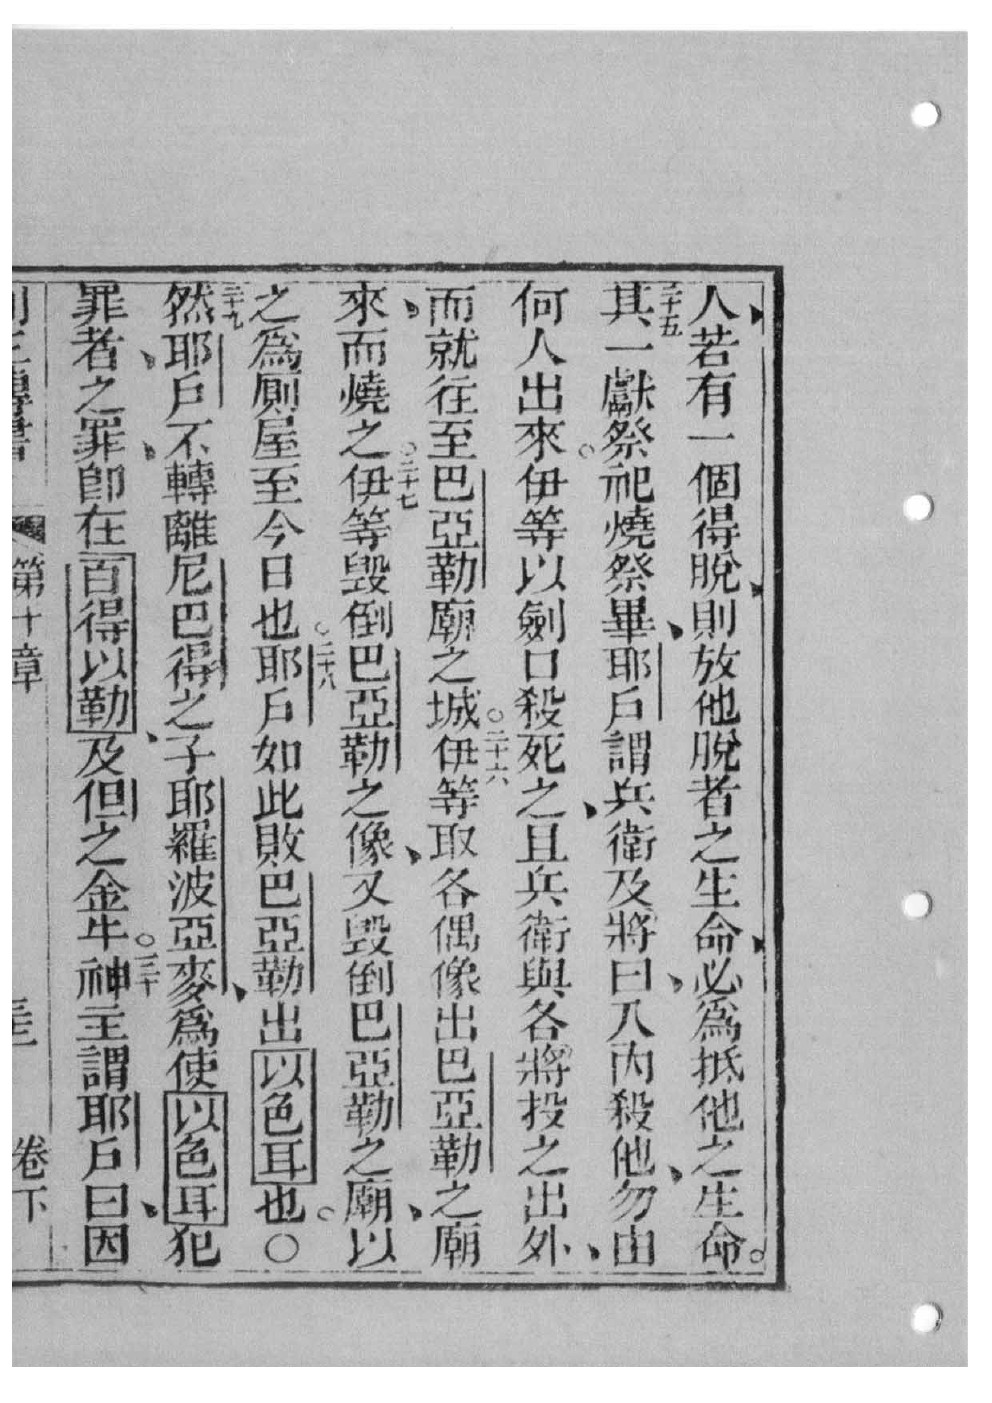 人若有一個得脫則放他脫者之生命必為抵他之生命。
二十五其一獻祭祀燒祭畢耶戶謂兵衛及將曰入內殺他勿由
何人出來。伊等以劍口殺死之且兵衛與各將投之出外
而就往至巴亞勒廟之城。二十六伊等取各偶像出巴亞勒之廟
來而燒之。二十七伊等毀倒巴亞勒之像又毀倒巴亞勒之廟以
之為厠屋至今日也。二十八耶戶如此敗巴亞勒出以色耳也。○
二十九然耶戶不轉離尼巴得之子耶羅波亞麥為使以色耳犯
罪者之罪即在百得以勒及但之金牛。三十神主謂耶戶曰因
列王傳書 第十章 卷下